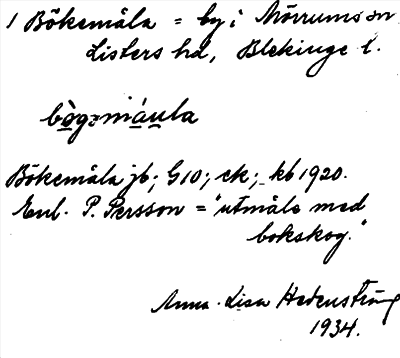 1 Bökemåla = by i Mörrums sn
Listers hd, Blekinge l.
bò̱gəmá̱u̱la
Bökemåla jb; G10; ek; kb 1920.
Enl. P. Persson = "utmåla med
bokskog."
Anna-Lisa Hedenström
1934.